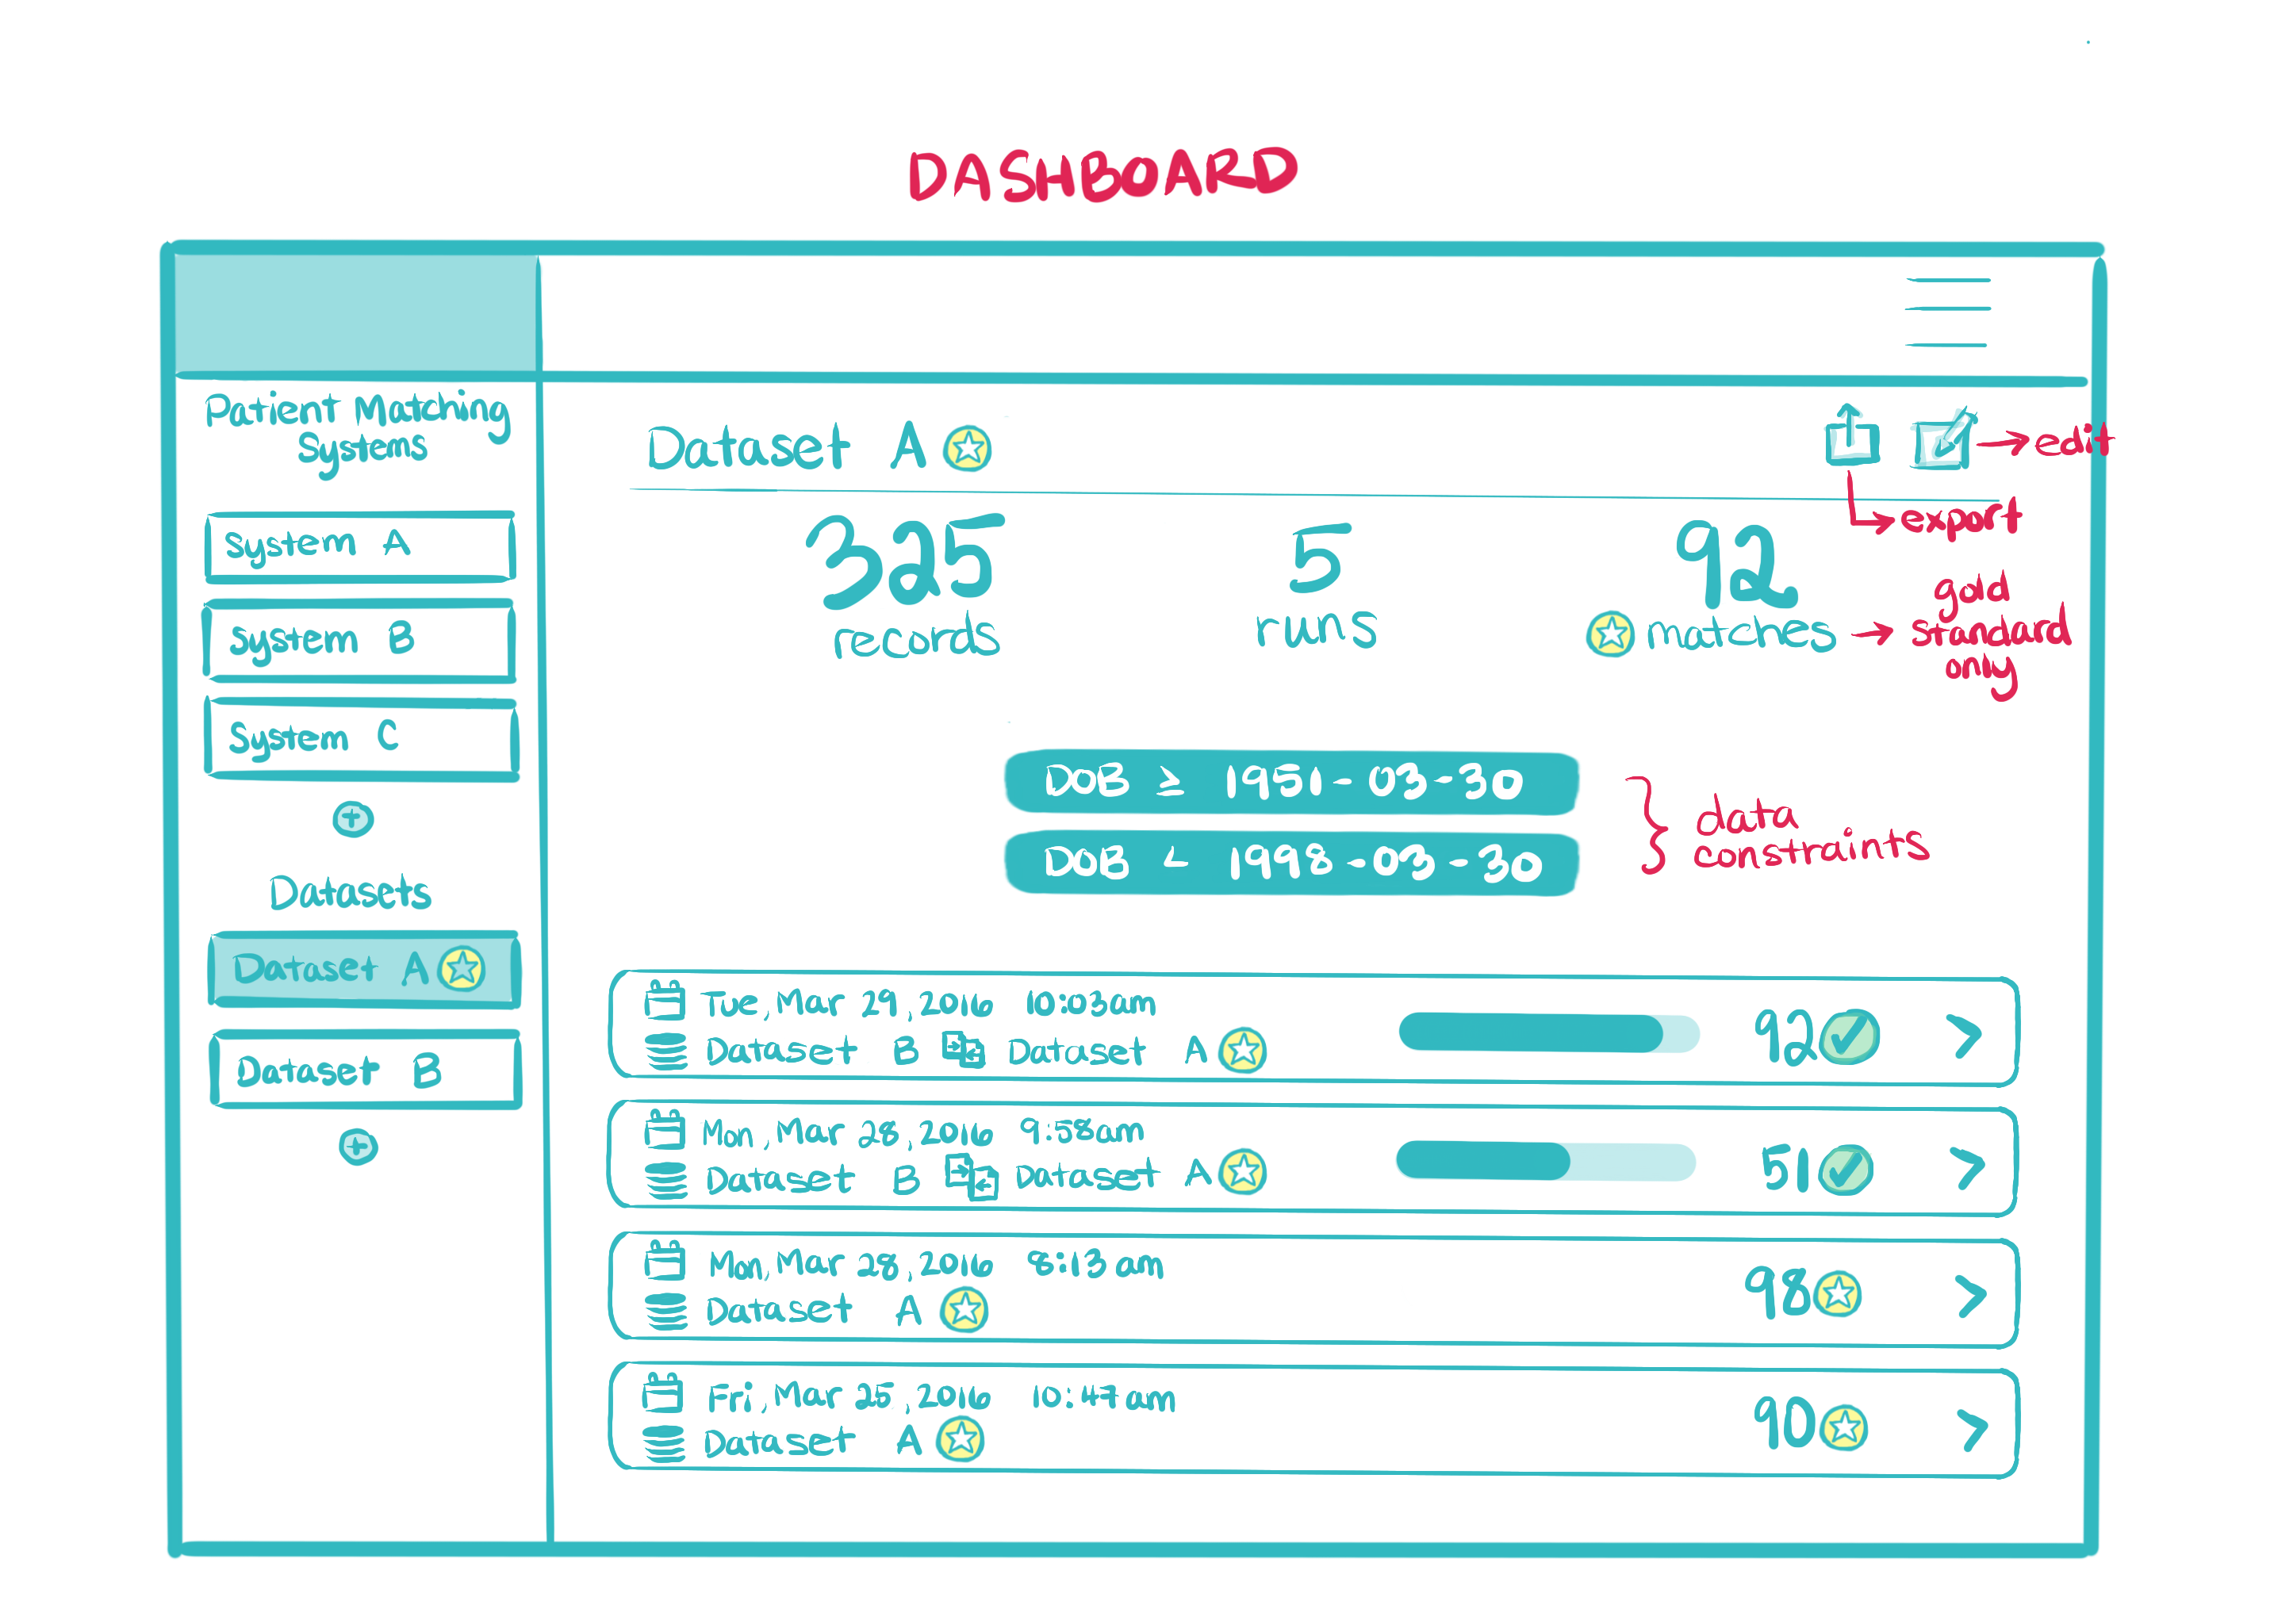 DASHBOARD
Patient Matching
Systems
System A
System B
System C
Datasets
Dataset A
Dataset B
Dataset A
edit
export
325
records
5
runs
92
matches
gold
standard
only
DOB ≥ 1951-03-30
DOB < 1998-03-30
data
constraints
Tue, Mar 29, 2016 10:03am
Dataset B Dataset A
92
Mon, Mar 28, 2016 9:58am
Dataset B Dataset A
51
Mon, Mar 28, 2016 8:13am
Dataset A
98
Fri, Mar 25, 2016 10:47am
Dataset A
90